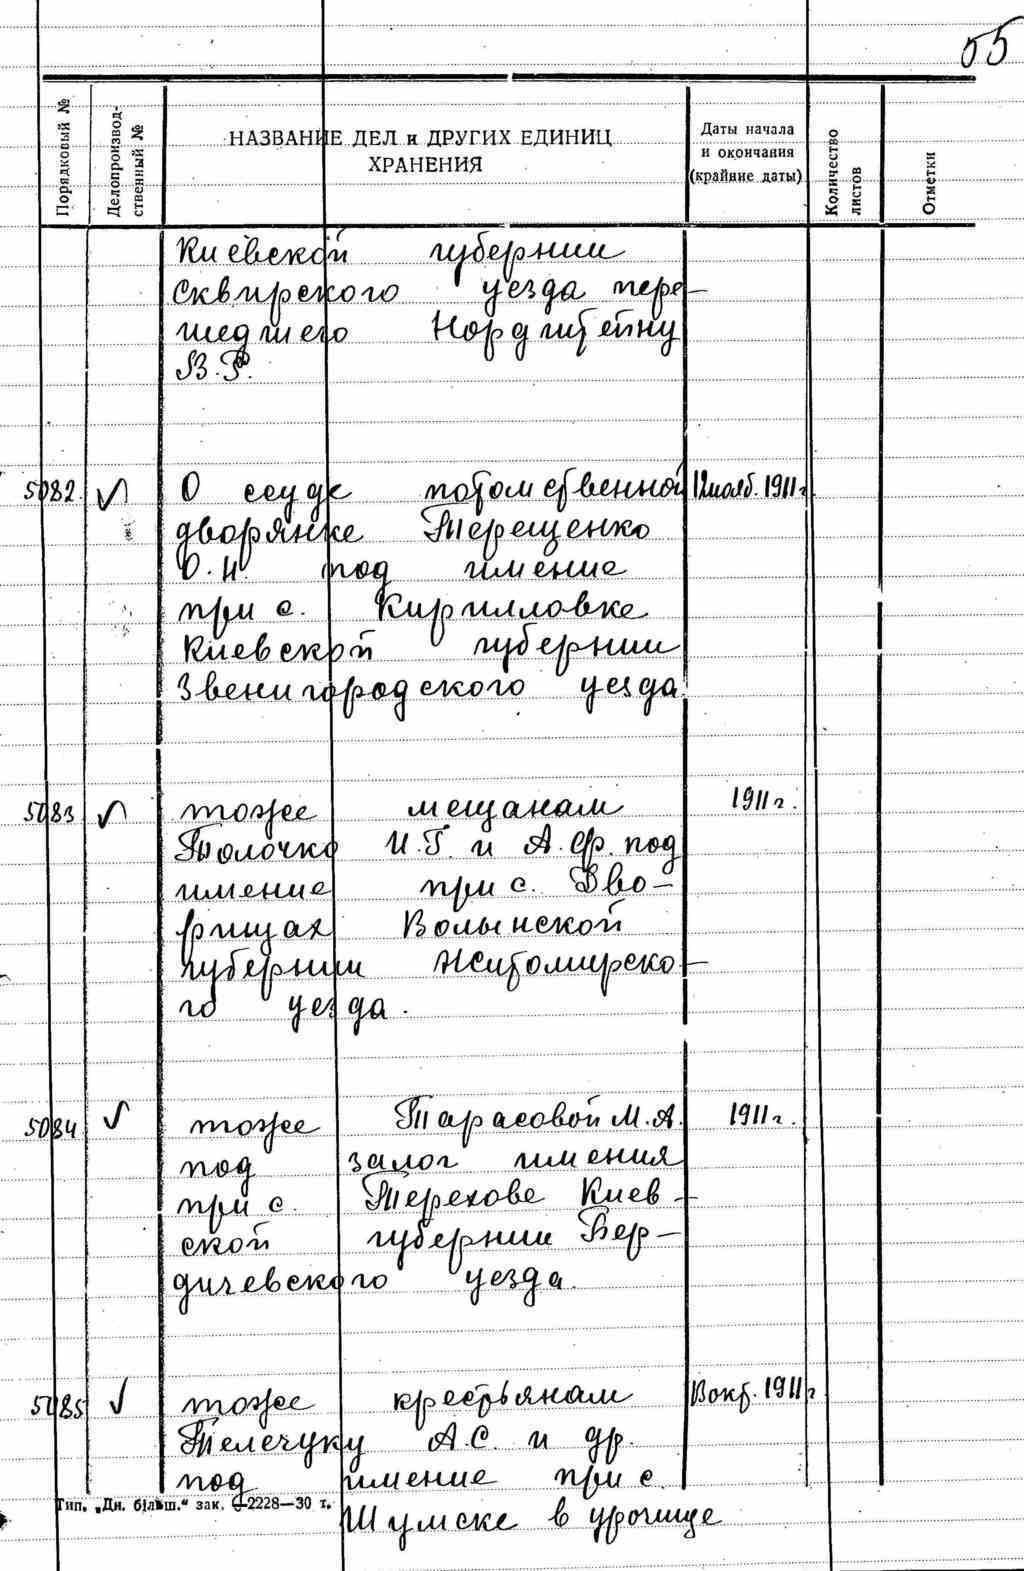 55
Порядковый №
Делопроизвод-
ственный №
НАЗВАНИЕ ДЕЛ и ДРУГИХ ЕДИНИЦ
ХРАНЕНИЯ
Даты начала
и окончания
(крайние даты)
Количество
листов
Отметки
Киевской губернии
Сквирского уезда пере-
шедшего Нордштейну
В.Р.
5082. О ссуде потомственной 12 нояб. 1911 г.
дворянке Терещенко
О.Н. под имение
при с. Кирилловке
Киевской губернии
Звенигородского уезда
5083 тоже мещанам 1911 г.
Толочко И.Г. и А.Ф. под
имение при с. Дво-
рищах Волынской
губернии Житомирско-
го уезда.
5084 тоже Тарасовой М.А. 1911 г.
под залог имения
при с. Терехове Киев-
ской губернии Бер-
дичевского уезда.
5085 тоже крестьянам окт. 1911 г
Телечуку А.С. и др.
под имение при с.
Тип. „Дн. більш." зак. 2228—30 т.
Шумске в урочище